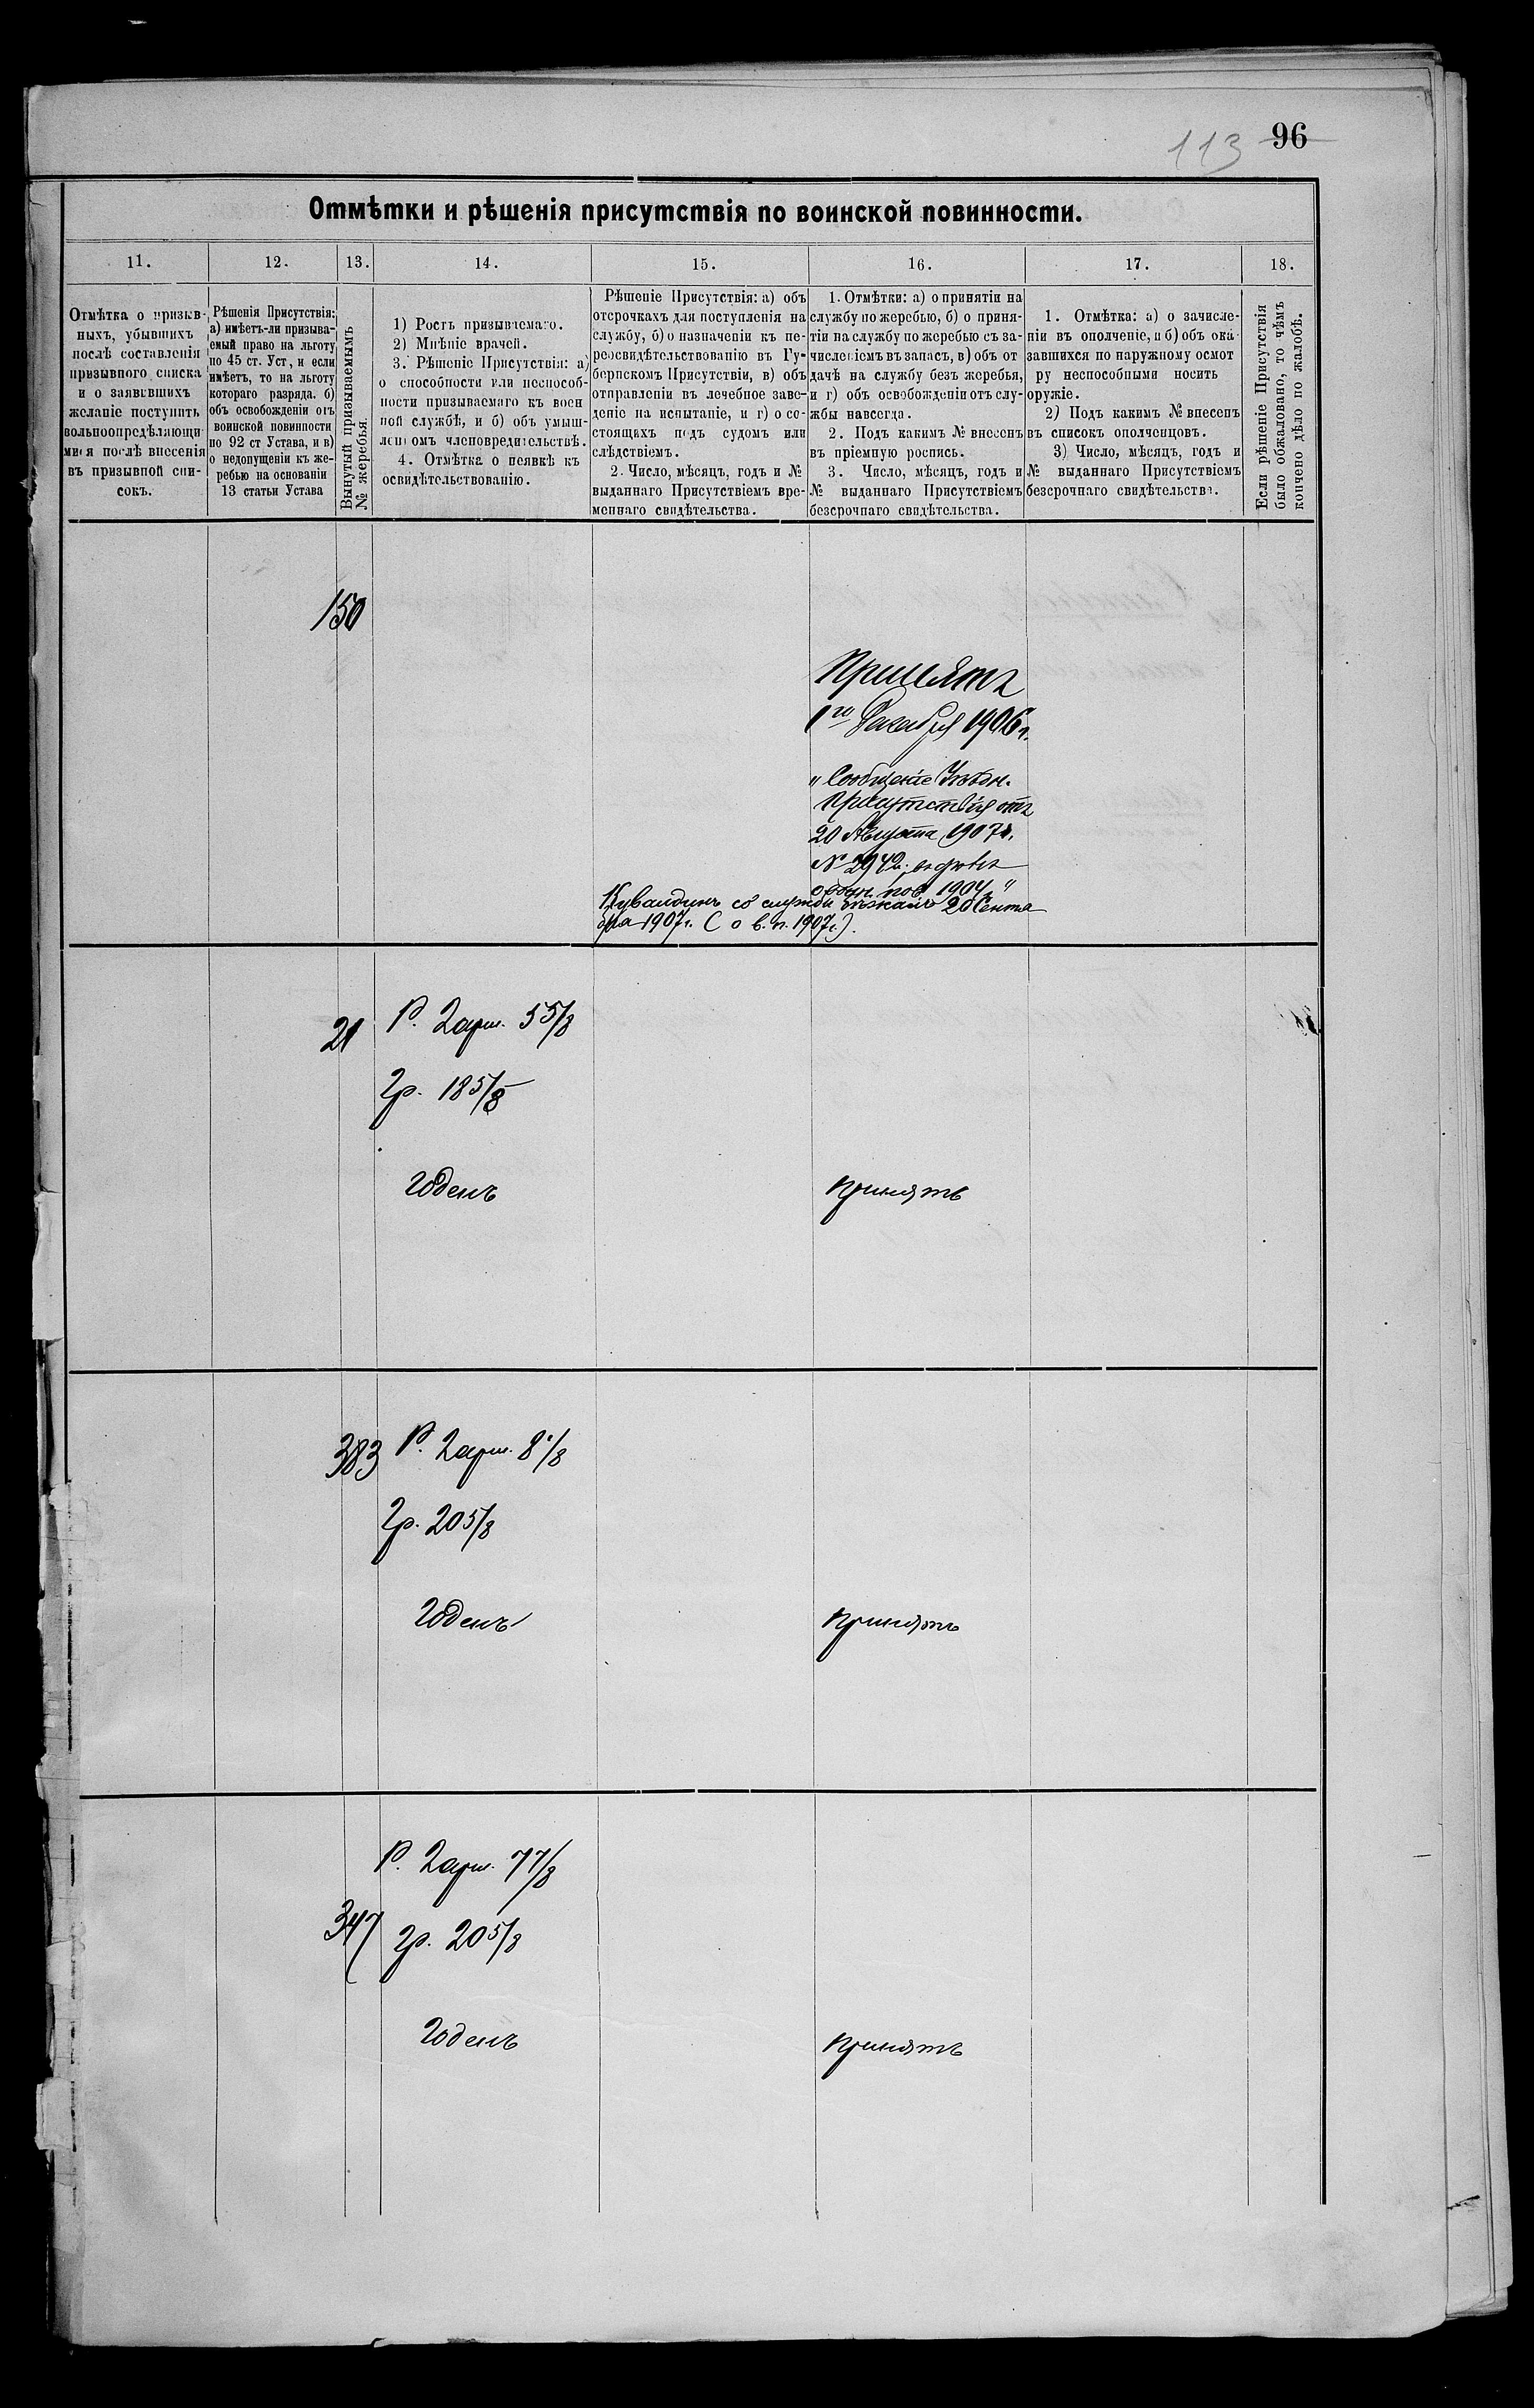 113 96
Отмѣтки и рѣшенія присутствія по воинской повинности.
11. 12. 13. 14. 15. 16. 17. 18.
Отмѣтка о призыв-
ныхъ, убывшихъ
послѣ составленія
призывного списка
и о заявившихъ
желаніе поступить
вольноопредѣляющи-
мися послѣ внесенія
въ призывной спи-
сокъ.
Рѣшенія Присутствія:
а) имѣетъ-ли призыва-
емый право на льготу
по 45 ст. Уст, и если
имѣетъ, то на льготу
котораго разряда. б)
объ освобожденіи отъ
воинской повинности
по 92 ст Устава, и в)
о недопущеніи къ же-
ребью на основаніи
13 статьи Устава
Вынутый призываемымъ
№ жеребья.
1) Ростъ призываемаго.
2) Мнѣніе врачей.
3. Рѣшеніе Присутствія: а)
о способности или неспособ-
ности призываемаго къ воен
ной службѣ, и б) объ умыш-
леномъ членовредительствѣ.
4. Отмѣтка о неявкѣ къ
освидѣтельствованію.
Рѣшеніе Присутствія: а) объ
отсрочкахъ для поступленія на
службу, б) о назначеніи къ пе-
реосвидѣтельствованію въ Гу-
бернскомъ Присутствіи, в) объ
отправленіи въ лечебное заве-
деніе на испытаніе, и г) о со-
стоящихъ подъ судомъ или
слѣдствіемъ.
2. Число, мѣсяцъ, годъ и №
выданнаго Присутствіемъ вре-
меннаго свидѣтельства.
1. Отмѣтки: а) о принятіи на
службу по жеребью, б) о приня-
тіи на службу по жеребью съ за-
численіемъ въ запасъ, в) объ от
дачѣ на службу безъ жеребья,
и г) объ освобожденіи отъ слу-
жбы навсегда.
2. Подъ какимъ № внесенъ
въ пріемную роспись.
3. Число, мѣсяцъ, годъ и
№ выданнаго Присутствіемъ
безсрочнаго свидѣтельства.
1. Отмѣтка: а) о зачисле-
ніи въ ополченіе, и б) объ ока-
завшихся по наружному осмот
ру неспособными носить
оружіе.
2) Подъ какимъ № внесенъ
въ списокъ ополченцовъ.
3) Число, мѣсяцъ, годъ и
№ выданнаго Присутствіемъ
безсрочнаго свидѣтельства.
Если рѣшеніе Присутствія
было обжаловано, то чѣмъ
кончено дѣло по жалобѣ.
150
Принятъ
1го Декабря 1906 г.
"Сообщеніе Уѣздн.
Присутствія отъ
20 Августа 1907 г.
№ 2942
1904 г."
со службы бѣжалъ 20 Сентя
бря 1907 г. (о в. п. 1907 г.).
21 Р. 2 арш. 5 5/8
Гр. 18 5/8
Годенъ принятъ
383 Р. 2 арш. 8 1/8
Гр. 20 5/8
Годенъ принятъ
Р. 2 арш. 7 7/8
347 Гр. 20 5/8
Годенъ принятъ